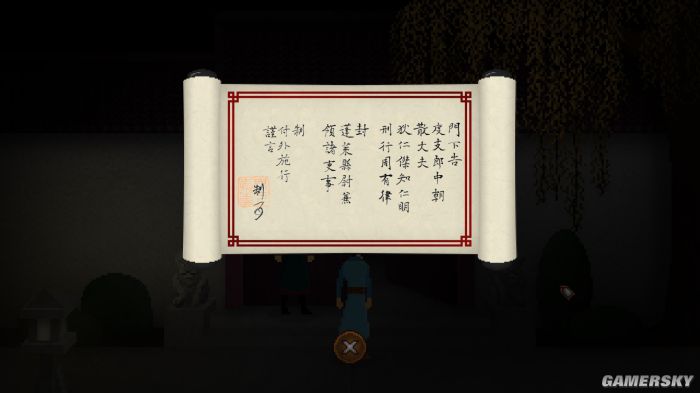 門下告
度支郎中朝
散大夫
狄仁傑知仁明
刑行周有律
封
蓬萊縣尉兼
領諸吏事
制
付外施行
謹言
制可
GAMERSKY